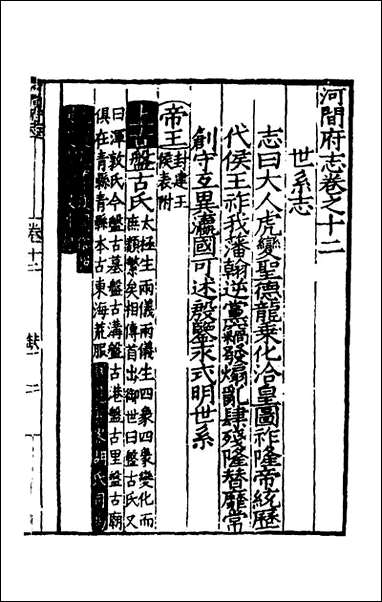 河間府志卷之十二
世系志
志曰大人虎變聖德龍乘化洽皇圖祚隆帝統歷
代侯王祚我潘翰逆黨竊發煽亂肆殘隆替靡常
創守互異瀛國可述殷鑒永式明世系
帝王封建王侯表附
上古盤古氏太極生兩儀兩儀生四象四象變化而
庶類繁矣相傳首出御世曰盤古氏又
曰渾敦氏今盤古墓盤古溝盤古港盤古里盤古廟
俱在青縣青縣本古東海荒服
卷十二